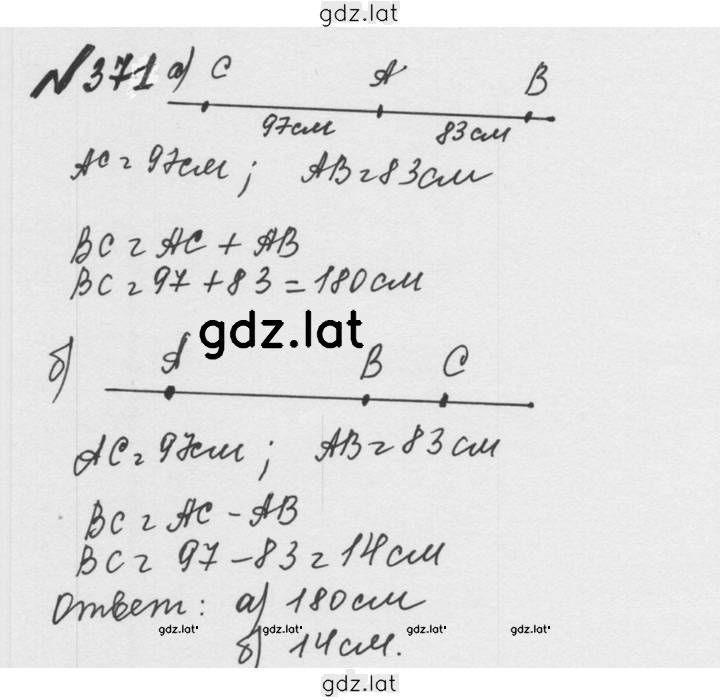 gdz.lat
№371 а) C A B
97см 83см
AC = 97см ; AB = 83см
BC = AC + AB
BC = 97 + 83 = 180 см
gdz.lat
б) A B C
AC = 97см ; AB = 83 см
BC = AC - AB
BC = 97 - 83 = 14 см
Ответ: а) 180 см
gdz.lat gdz.lat gdz.lat gdz.lat
б) 14 см.
gdz.lat